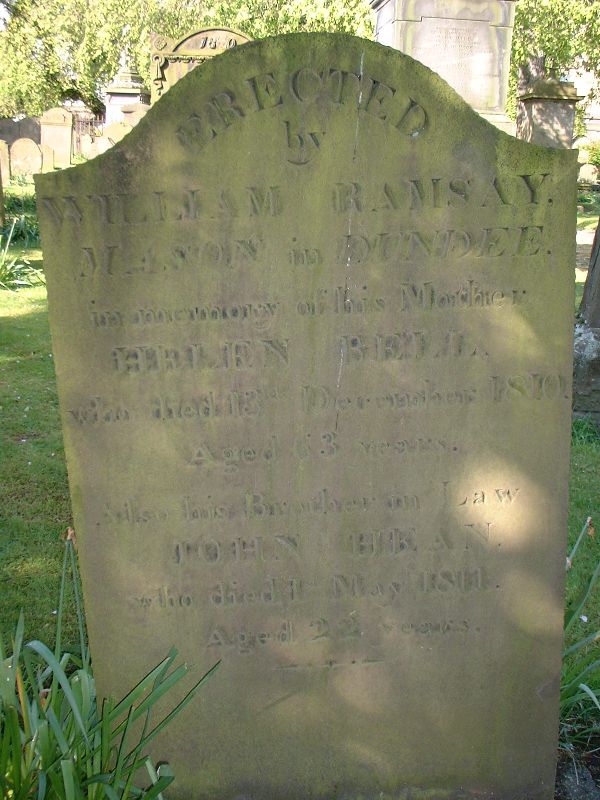 ERECTED
by
WILLIAM RAMSAY.
MASON in DUNDEE.
in memory of his Mother
HELEN BELL.
who died 13th December 1810.
Aged 63 years.
Also his Brother in Law
JOHN HEAN.
who died 1st May 1811.
Aged 22 years.